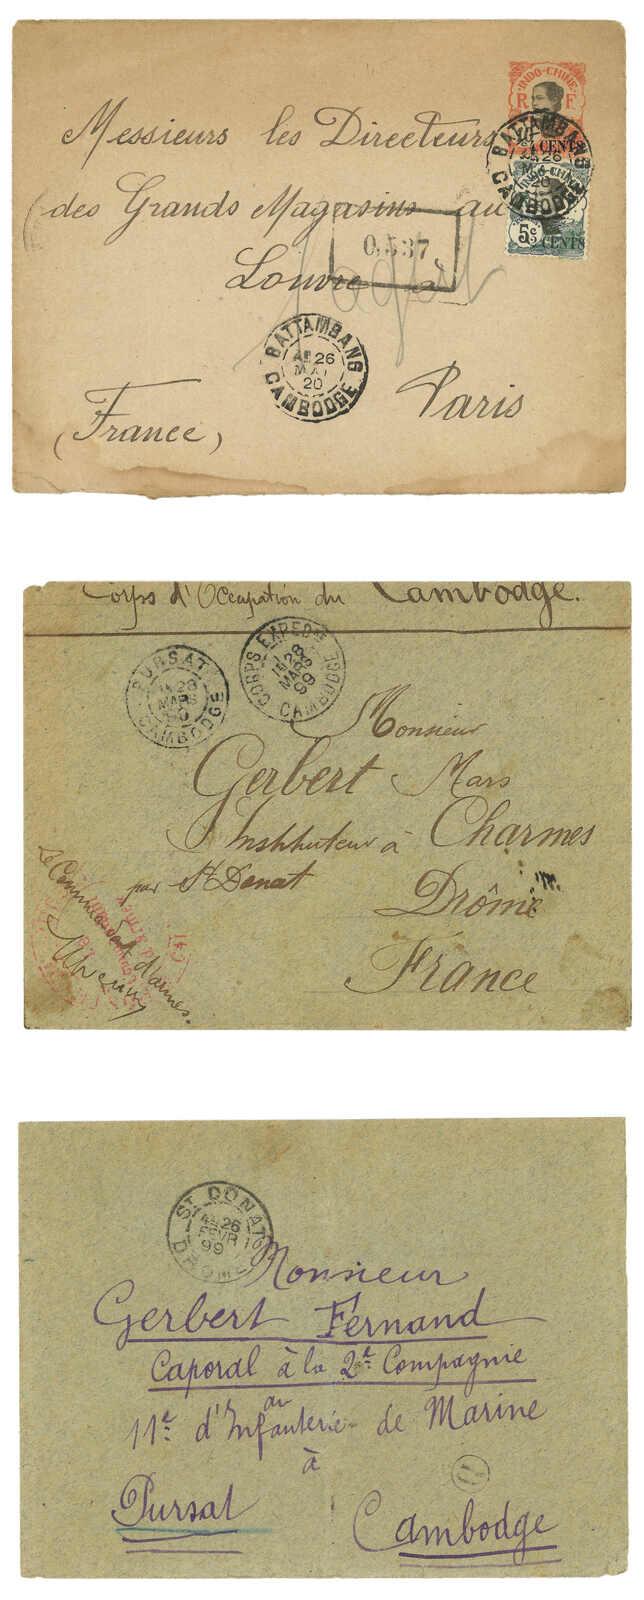 INDO-CHINE
R F
CENTS
INDO-CHINE
5c CENTS
BATTAMBANG
26
20
CAMBODGE
Messieurs les Directeurs
des Grands Magasins au
0.537
Louvre à
BATTAMBANG
26
MAI
20
CAMBODGE
Paris
(France)
Corps d'Occupation du Cambodge.
CORPS EXPEDre
28
MARS
99
CAMBODGE
PURSAT
28
MARS
CAMBODGE
Monsieur
Gerbert Mars
Instituteur à Charmes
par St Donat
Drôme
France
Le Commandant d'armes.
ST DONAT
26
FEVR
99
DROME
Monsieur
Gerbert Fernand
Caporal à la 2e Compagnie
au
11e d'Infanterie de Marine
à
Pursat
Cambodge